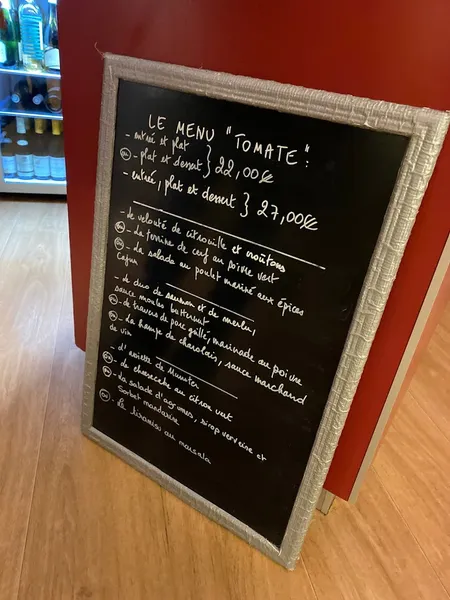 LE MENU "TOMATE":
- entrée et plat
ou - plat et dessert } 22,00€
- entrée, plat et dessert } 27,00€
- Le velouté de citrouille et croûtons
ou - La terrine de cerf au poivre vert
ou - La salade au poulet mariné aux épices
cajun
- Le duo de saumon et de merlu,
sauce moules butternut
ou - Le travers de porc grillé, marinade au poivre
ou - La hampe de charolais, sauce marchand
de vin
- L'assiette de Munster
ou - Le cheesecake au citron vert
ou - La salade d'agrumes, sirop verveine et
sorbet mandarine
ou - Le tiramisu au marsala